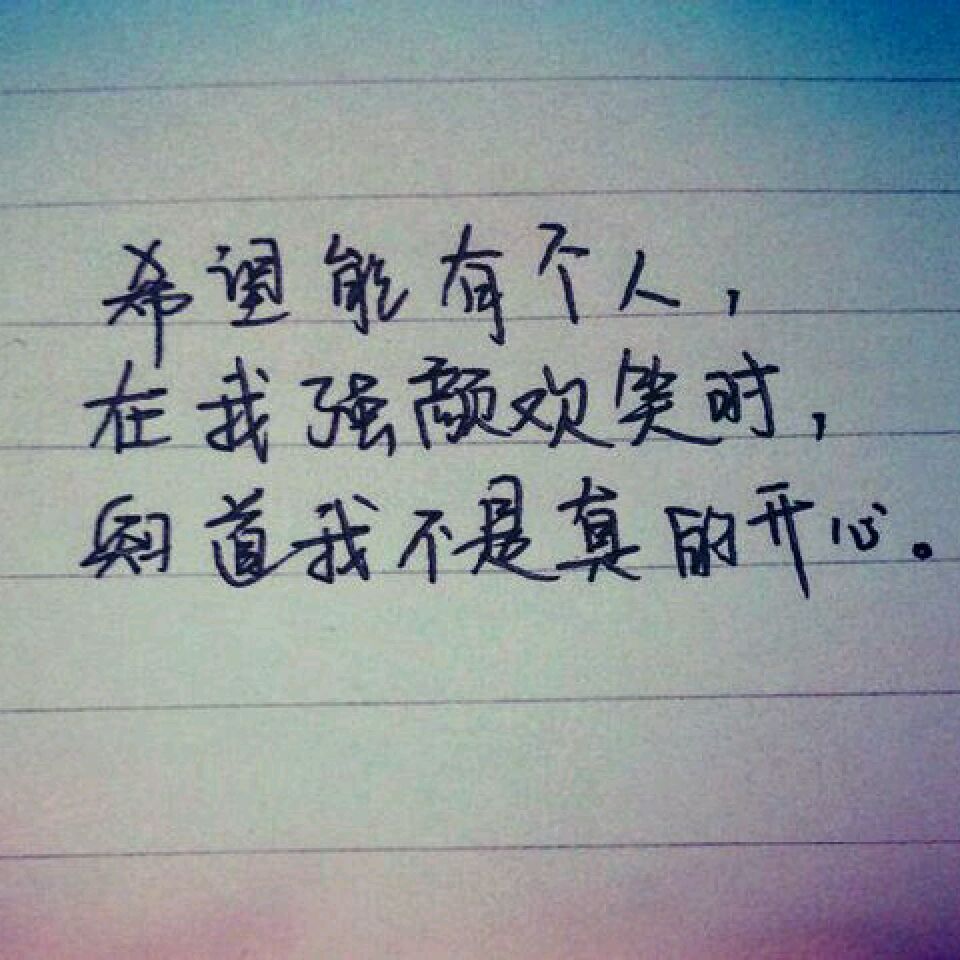 希望能有个人，
在我强颜欢笑时，
知道我不是真的开心。